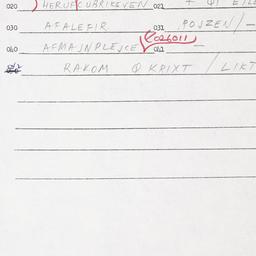 020 HERUFCUBRIKEVEN 021
030 AFALEFIR 031 POVZEN/—
040 AFMAJNPLEJCE 041 —
026011
RAKOM O KRIXT / LIKT